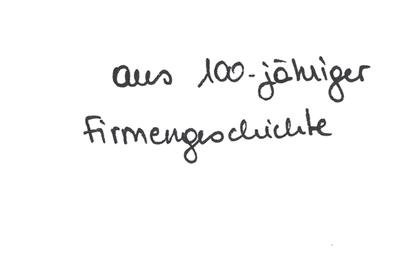 aus 100-jähriger
Firmengeschichte